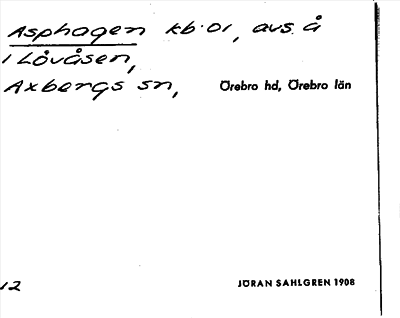 Asphagen kb. 01, avs. å
i Lövåsen,
Axbergs sn, Örebro hd, Örebro län
12 JÖRAN SAHLGREN 1908